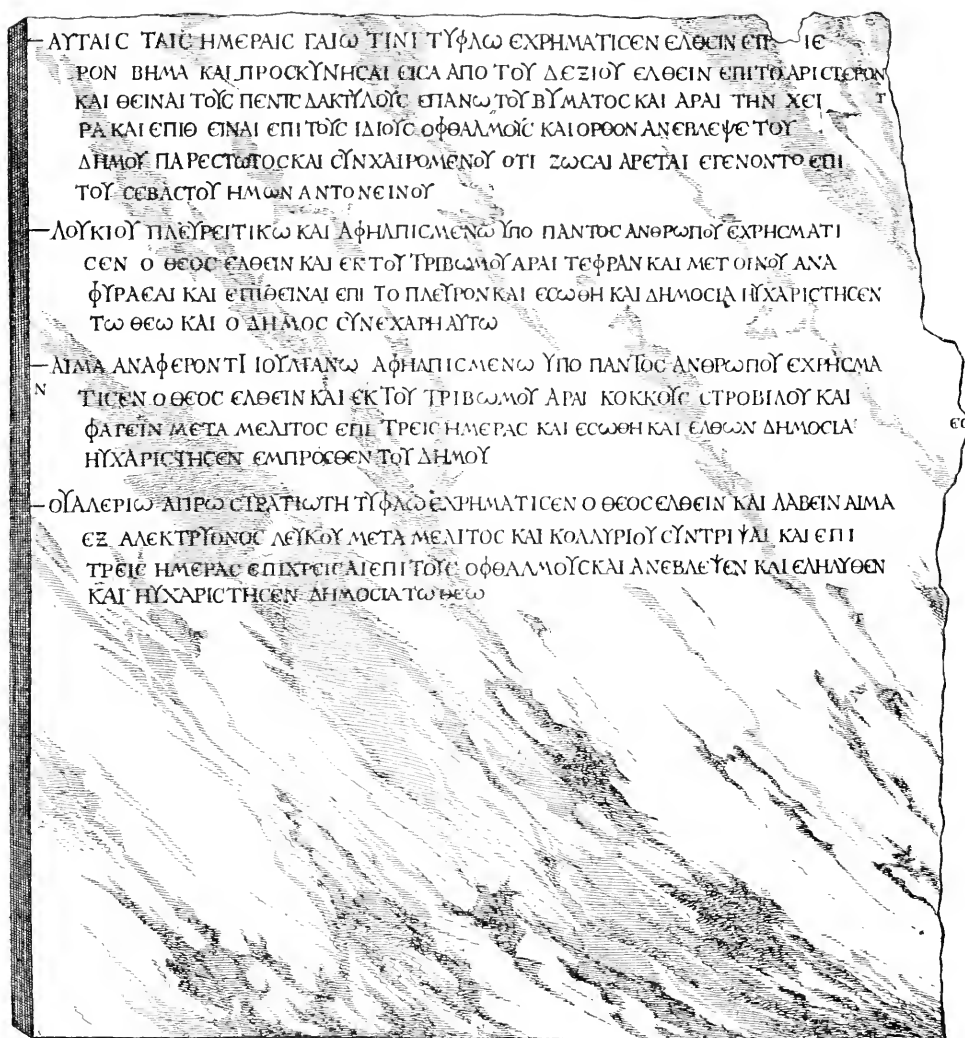 ΑΥΤΑΙϹ ΤΑΙϹ ΗΜΕΡΑΙϹ ΓΑΙω ΤΙΝΙ ΤΥΦΛω ΕΧΡΗΜΑΤΙϹΕΝ ΕΛΘΕΙΝ ΕΠ ΙΕ
ΡΟΝ ΒΗΜΑ ΚΑΙ ΠΡΟϹΚΥΝΗϹΑΙ ΕΙϹΑ ΑΠΟ ΤΟΥ ΔΕΞΙΟΥ ΕΛΘΕΙΝ ΕΠΙ ΤΟ ΑΡΙϹΤΕΡΟΝ
ΚΑΙ ΘΕΙΝΑΙ ΤΟΥϹ ΠΕΝΤϹ ΔΑΚΤΥΛΟΥϹ ΕΠΑΝω ΤΟΥ ΒΥΜΑΤΟϹ ΚΑΙ ΑΡΑΙ ΤΗΝ ΧΕΙ Τ
ΡΑ ΚΑΙ ΕΠΙΘ ΕΙΝΑΙ ΕΠΙ ΤΟΥϹ ΙΔΙΟΥϹ ΟΦΘΑΛΜΟΙϹ ΚΑΙ ΟΡΘΟΝ ΑΝΕΒΛΕΨΕ ΤΟΥ
ΔΗΜΟΥ ΠΑΡΕϹΤωΤΟϹ ΚΑΙ ϹΥΝΧΑΙΡΟΜΕΝΟΥ ΟΤΙ ΖωϹΑΙ ΑΡΕΤΑΙ ΕΓΕΝΟΝΤΟ ΕΠΙ
ΤΟΥ ϹΕΒΑϹΤΟΥ ΗΜωΝ ΑΝΤΟΝΕΙΝΟΥ
ΛΟΥΚΙΟΥ ΠΛΕΥΡΕΙΤΙΚω ΚΑΙ ΑΦΗΛΠΙϹΜΕΝω ΥΠΟ ΠΑΝΤΟϹ ΑΝΘΡωΠΟΥ ΕΧΡΗϹΜΑΤΙ
ϹΕΝ Ο ΘΕΟϹ ΕΛΘΕΙΝ ΚΑΙ ΕΚ ΤΟΥ ΤΡΙΒωΜΟΥ ΑΡΑΙ ΤΕΦΡΑΝ ΚΑΙ ΜΕΤ ΟΙΝΟΥ ΑΝΑ
ΦΥΡΑΕΑΙ ΚΑΙ ΕΠΙΘΕΙΝΑΙ ΕΠΙ ΤΟ ΠΛΕΥΡΟΝ ΚΑΙ ΕϹωΘΗ ΚΑΙ ΔΗΜΟϹΙΑ ΗΥΧΑΡΙϹΤΗϹΕΝ
Τω ΘΕω ΚΑΙ Ο ΔΗΜΟϹ ϹΥΝΕΧΑΡΗ ΑΥΤω
ΑΙΜΑ ΑΝΑΦΕΡΟΝΤΙ ΙΟΥΛΙΑΝω ΑΦΗΛΠΙϹΜΕΝω ΥΠΟ ΠΑΝΤΟϹ ΑΝΘΡωΠΟΥ ΕΧΡΗϹΜΑ
Ν ΤΙϹΕΝ Ο ΘΕΟϹ ΕΛΘΕΙΝ ΚΑΙ ΕΚ ΤΟΥ ΤΡΙΒωΜΟΥ ΑΡΑΙ ΚΟΚΚΟΥϹ ϹΤΡΟΒΙΛΟΥ ΚΑΙ
ΦΑΓΕΙΝ ΜΕΤΑ ΜΕΛΙΤΟϹ ΕΠΙ ΤΡΕΙϹ ΗΜΕΡΑϹ ΚΑΙ ΕϹωΘΗ ΚΑΙ ΕΛΘωΝ ΔΗΜΟϹΙΑ
ΗΥΧΑΡΙϹΤΗϹΕΝ ΕΜΠΡΟϹΘΕΝ ΤΟΥ ΔΗΜΟΥ
ΟΥΑΛΕΡΙω ΑΠΡω ϹΤΡΑΤΙωΤΗ ΤΥΦΛω ΕΧΡΗΜΑΤΙϹΕΝ Ο ΘΕΟϹ ΕΛΘΕΙΝ ΚΑΙ ΛΑΒΕΙΝ ΑΙΜΑ
ΕΞ ΑΛΕΚΤΡΥΟΝΟϹ ΛΕΥΚΟΥ ΜΕΤΑ ΜΕΛΙΤΟϹ ΚΑΙ ΚΟΛΛΥΡΙΟΥ ϹΥΝΤΡΙΨΑΙ ΚΑΙ ΕΠΙ
ΤΡΕΙϹ ΗΜΕΡΑϹ ΕΠΙΧΡΕΙϹΑΙ ΕΠΙ ΤΟΥϹ ΟΦΘΑΛΜΟΥϹ ΚΑΙ ΑΝΕΒΛΕΨΕΝ ΚΑΙ ΕΛΗΛΥΘΕΝ
ΚΑΙ ΗΥΧΑΡΙϹΤΗϹΕΝ ΔΗΜΟϹΙΑ Τω ΘΕω